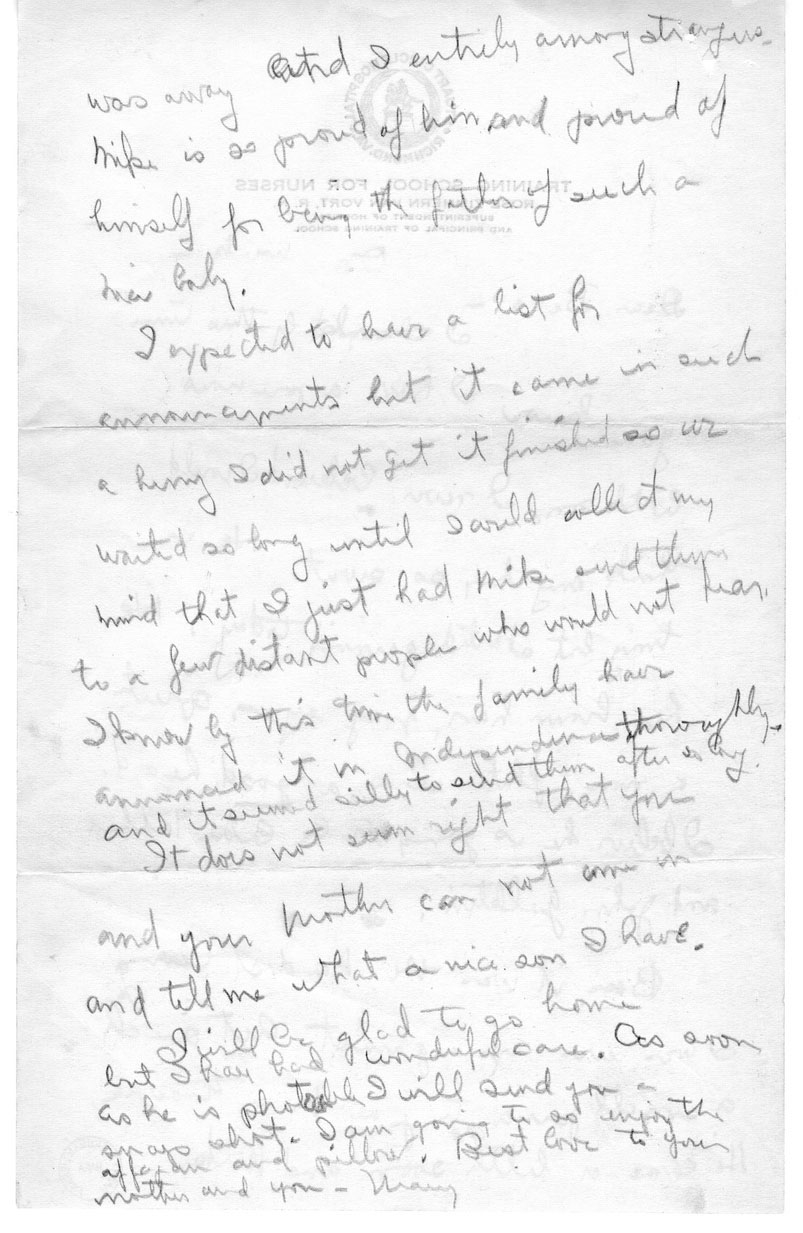 and I entirely among strangers.
was away
Mike is so proud of him and proud of
himself for being the father of such a
nice baby.
I expected to have a list for
announcements but it came in such
a hurry I did not get it finished so we
waited so long until I could collect my
mind that I just had Mike send them
to a few distant people who would not hear.
I know by this time the family have
announced it in Independence thoroughly.
and it seemed silly to send them after so long.
It does not seem right that you
and your mother can not come in
and tell me what a nice son I have.
I will be glad to go home
but I have had wonderful care. As soon
as he is photoable I will send you a
snap shot. I am going to so enjoy the
afgan and pillow. Best love to your
mother and you - Mary
TRAINING SCHOOL FOR NURSES
VAN VORT, R. N.
SUPERINTENDENT OF
AND PRINCIPAL OF TRAINING SCHOOL